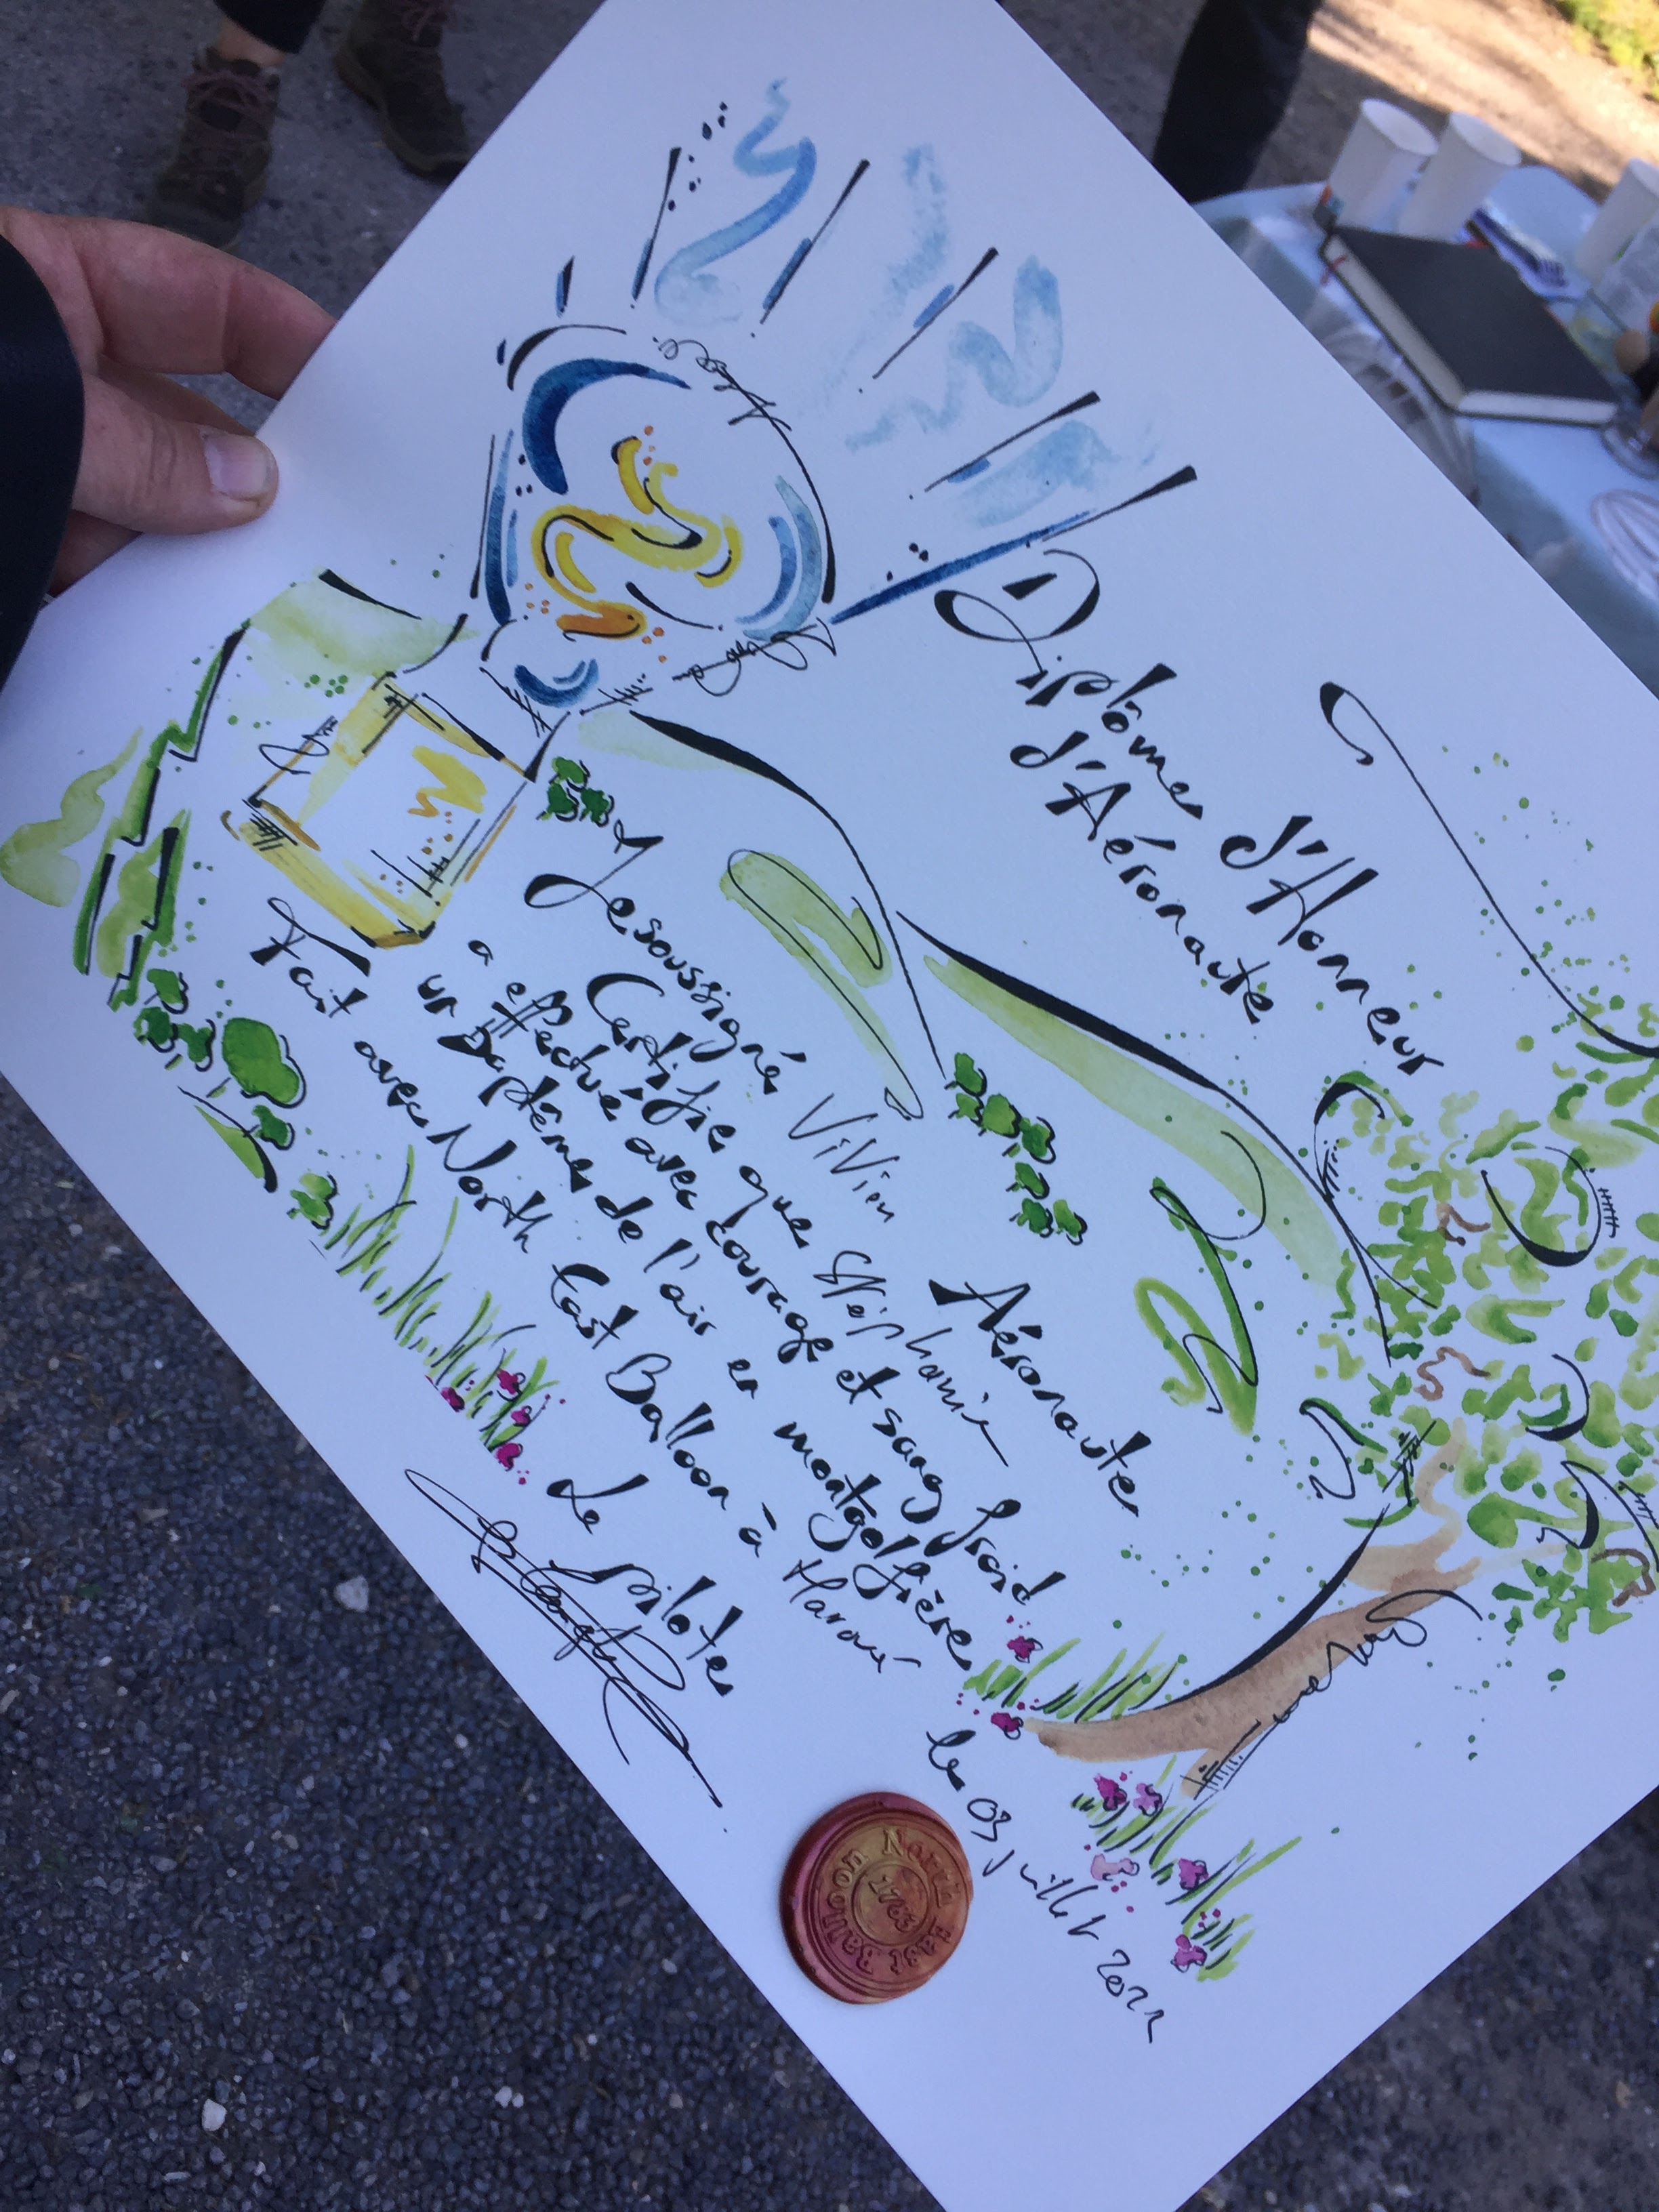 Diplôme d'Honneur
d'Aéronaute
Je soussigné ViVien Aéronaute
Certifie que Stéphanie
a effectué avec courage et sang froid
un Baptême de l'air en montgolfière
Fait avec North East Balloon à Haroué
le 03 juillet 2021
Le pilote
North East Balloon
1783